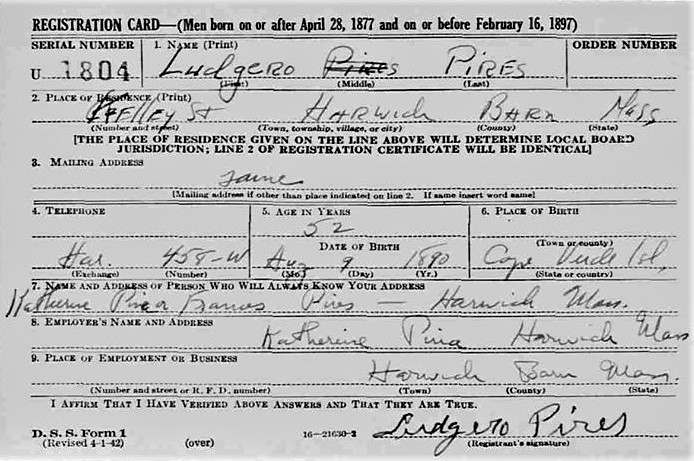 REGISTRATION CARD—(Men born on or after April 28, 1877 and on or before February 16, 1897)
SERIAL NUMBER 1. NAME (Print) ORDER NUMBER
U 1804 Ludgero Pires PIRES
(First) (Middle) (Last)
2. PLACE OF RESIDENCE (Print)
Kelley St HARWICH BARN MASS
(Number and street) (Town, township, village, or city) (County) (State)
[THE PLACE OF RESIDENCE GIVEN ON THE LINE ABOVE WILL DETERMINE LOCAL BOARD
JURISDICTION; LINE 2 OF REGISTRATION CERTIFICATE WILL BE IDENTICAL]
3. MAILING ADDRESS
Same
[Mailing address if other than place indicated on line 2. If same insert word same]
4. TELEPHONE 5. AGE IN YEARS 6. PLACE OF BIRTH
52
DATE OF BIRTH (Town or county)
Har. 458-W Aug 9 1890 Cape Verde Isl,
(Exchange) (Number) (Mo.) (Day) (Yr.) (State or country)
7. NAME AND ADDRESS OF PERSON WHO WILL ALWAYS KNOW YOUR ADDRESS
Katherine Pina or Frances Pires — Harwich Mass.
8. EMPLOYER'S NAME AND ADDRESS
Katherine Pina Harwich Mass
9. PLACE OF EMPLOYMENT OR BUSINESS
Harwich Barn Mass.
(Number and street or R. F. D. number) (Town) (County) (State)
I AFFIRM THAT I HAVE VERIFIED ABOVE ANSWERS AND THAT THEY ARE TRUE.
D. S. S. Form 1
(Revised 4-1-42) (over) 16—21630-2 Ludgero Pires
(Registrant's signature)